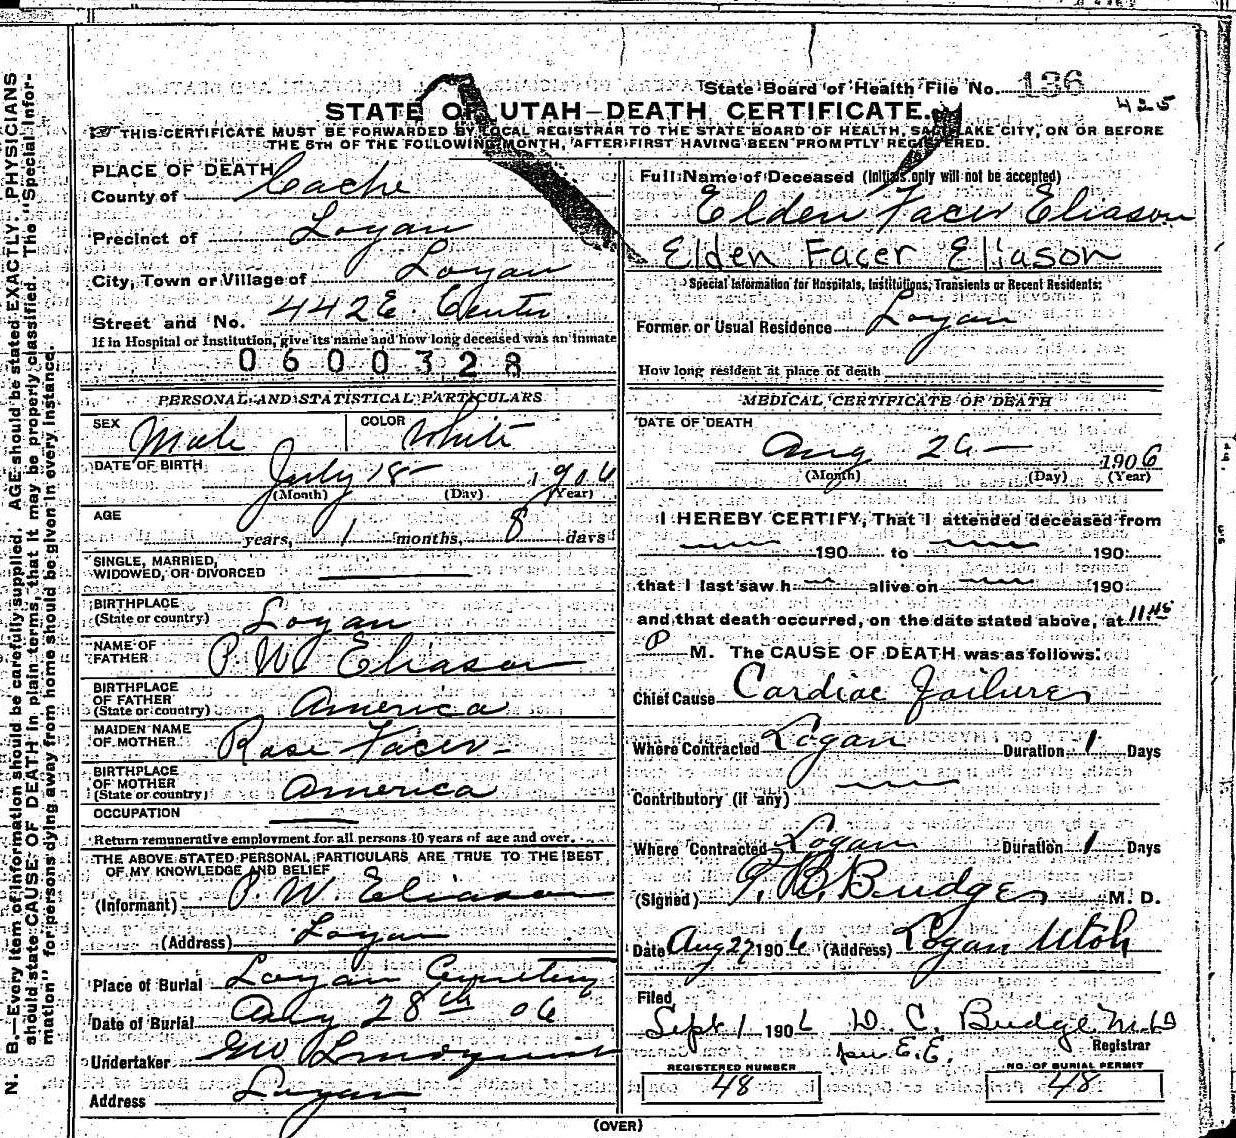 State Board of Health File No. 136
425
STATE OF UTAH—DEATH CERTIFICATE.
THIS CERTIFICATE MUST BE FORWARDED BY LOCAL REGISTRAR TO THE STATE BOARD OF HEALTH, SALT LAKE CITY, ON OR BEFORE
THE 5TH OF THE FOLLOWING MONTH, AFTER FIRST HAVING BEEN PROMPTLY REGISTERED.
PLACE OF DEATH
County of Cache
Precinct of Logan
City, Town or Village of Logan
Street and No. 442 E. Center
If in Hospital or Institution, give its name and how long deceased was an inmate
0600328
PERSONAL AND STATISTICAL PARTICULARS
SEX Male COLOR White
DATE OF BIRTH July 18 1906
(Month) (Day) (Year)
AGE
years, 1 months, 8 days
SINGLE, MARRIED,
WIDOWED, OR DIVORCED
BIRTHPLACE
(State or country) Logan
NAME OF
FATHER P. W. Eliason
BIRTHPLACE
OF FATHER
(State or country) America
MAIDEN NAME
OF MOTHER Rose Facer
BIRTHPLACE
OF MOTHER
(State or country) America
OCCUPATION
Return remunerative employment for all persons 10 years of age and over.
THE ABOVE STATED PERSONAL PARTICULARS ARE TRUE TO THE BEST
OF MY KNOWLEDGE AND BELIEF
(Informant) P. W. Eliason
(Address) Logan
Place of Burial Logan Cemetery
Date of Burial 28th 06
Undertaker
Address Logan
Full Name of Deceased (Initials only will not be accepted)
Elden Facer Eliason
Elden Facer Eliason
Special Information for Hospitals, Institutions, Transients or Recent Residents:
Former or Usual Residence Logan
How long resident at place of death
MEDICAL CERTIFICATE OF DEATH
DATE OF DEATH
Aug 26 1906
(Month) (Day) (Year)
I HEREBY CERTIFY, That I attended deceased from
190 to 190
that I last saw h alive on 190
and that death occurred, on the date stated above, at 11.45
P M. The CAUSE OF DEATH was as follows:
Chief Cause Cardiac Failure
Where Contracted Logan Duration 1 Days
Contributory (if any)
Where Contracted Logan Duration 1 Days
(Signed) T. B. Budge M. D.
Date Aug 27 1906 (Address) Logan Utah
Filed
Sept 1 1906 D. C. Budge M.D
per E.E. Registrar
REGISTERED NUMBER NO. OF BURIAL PERMIT
48 48
(OVER)
N. B.—Every item of information should be carefully supplied. AGE should be stated EXACTLY. PHYSICIANS
should state CAUSE OF DEATH in plain terms, that it may be properly classified. The "Special Infor-
mation" for persons dying away from home should be given in every instance.